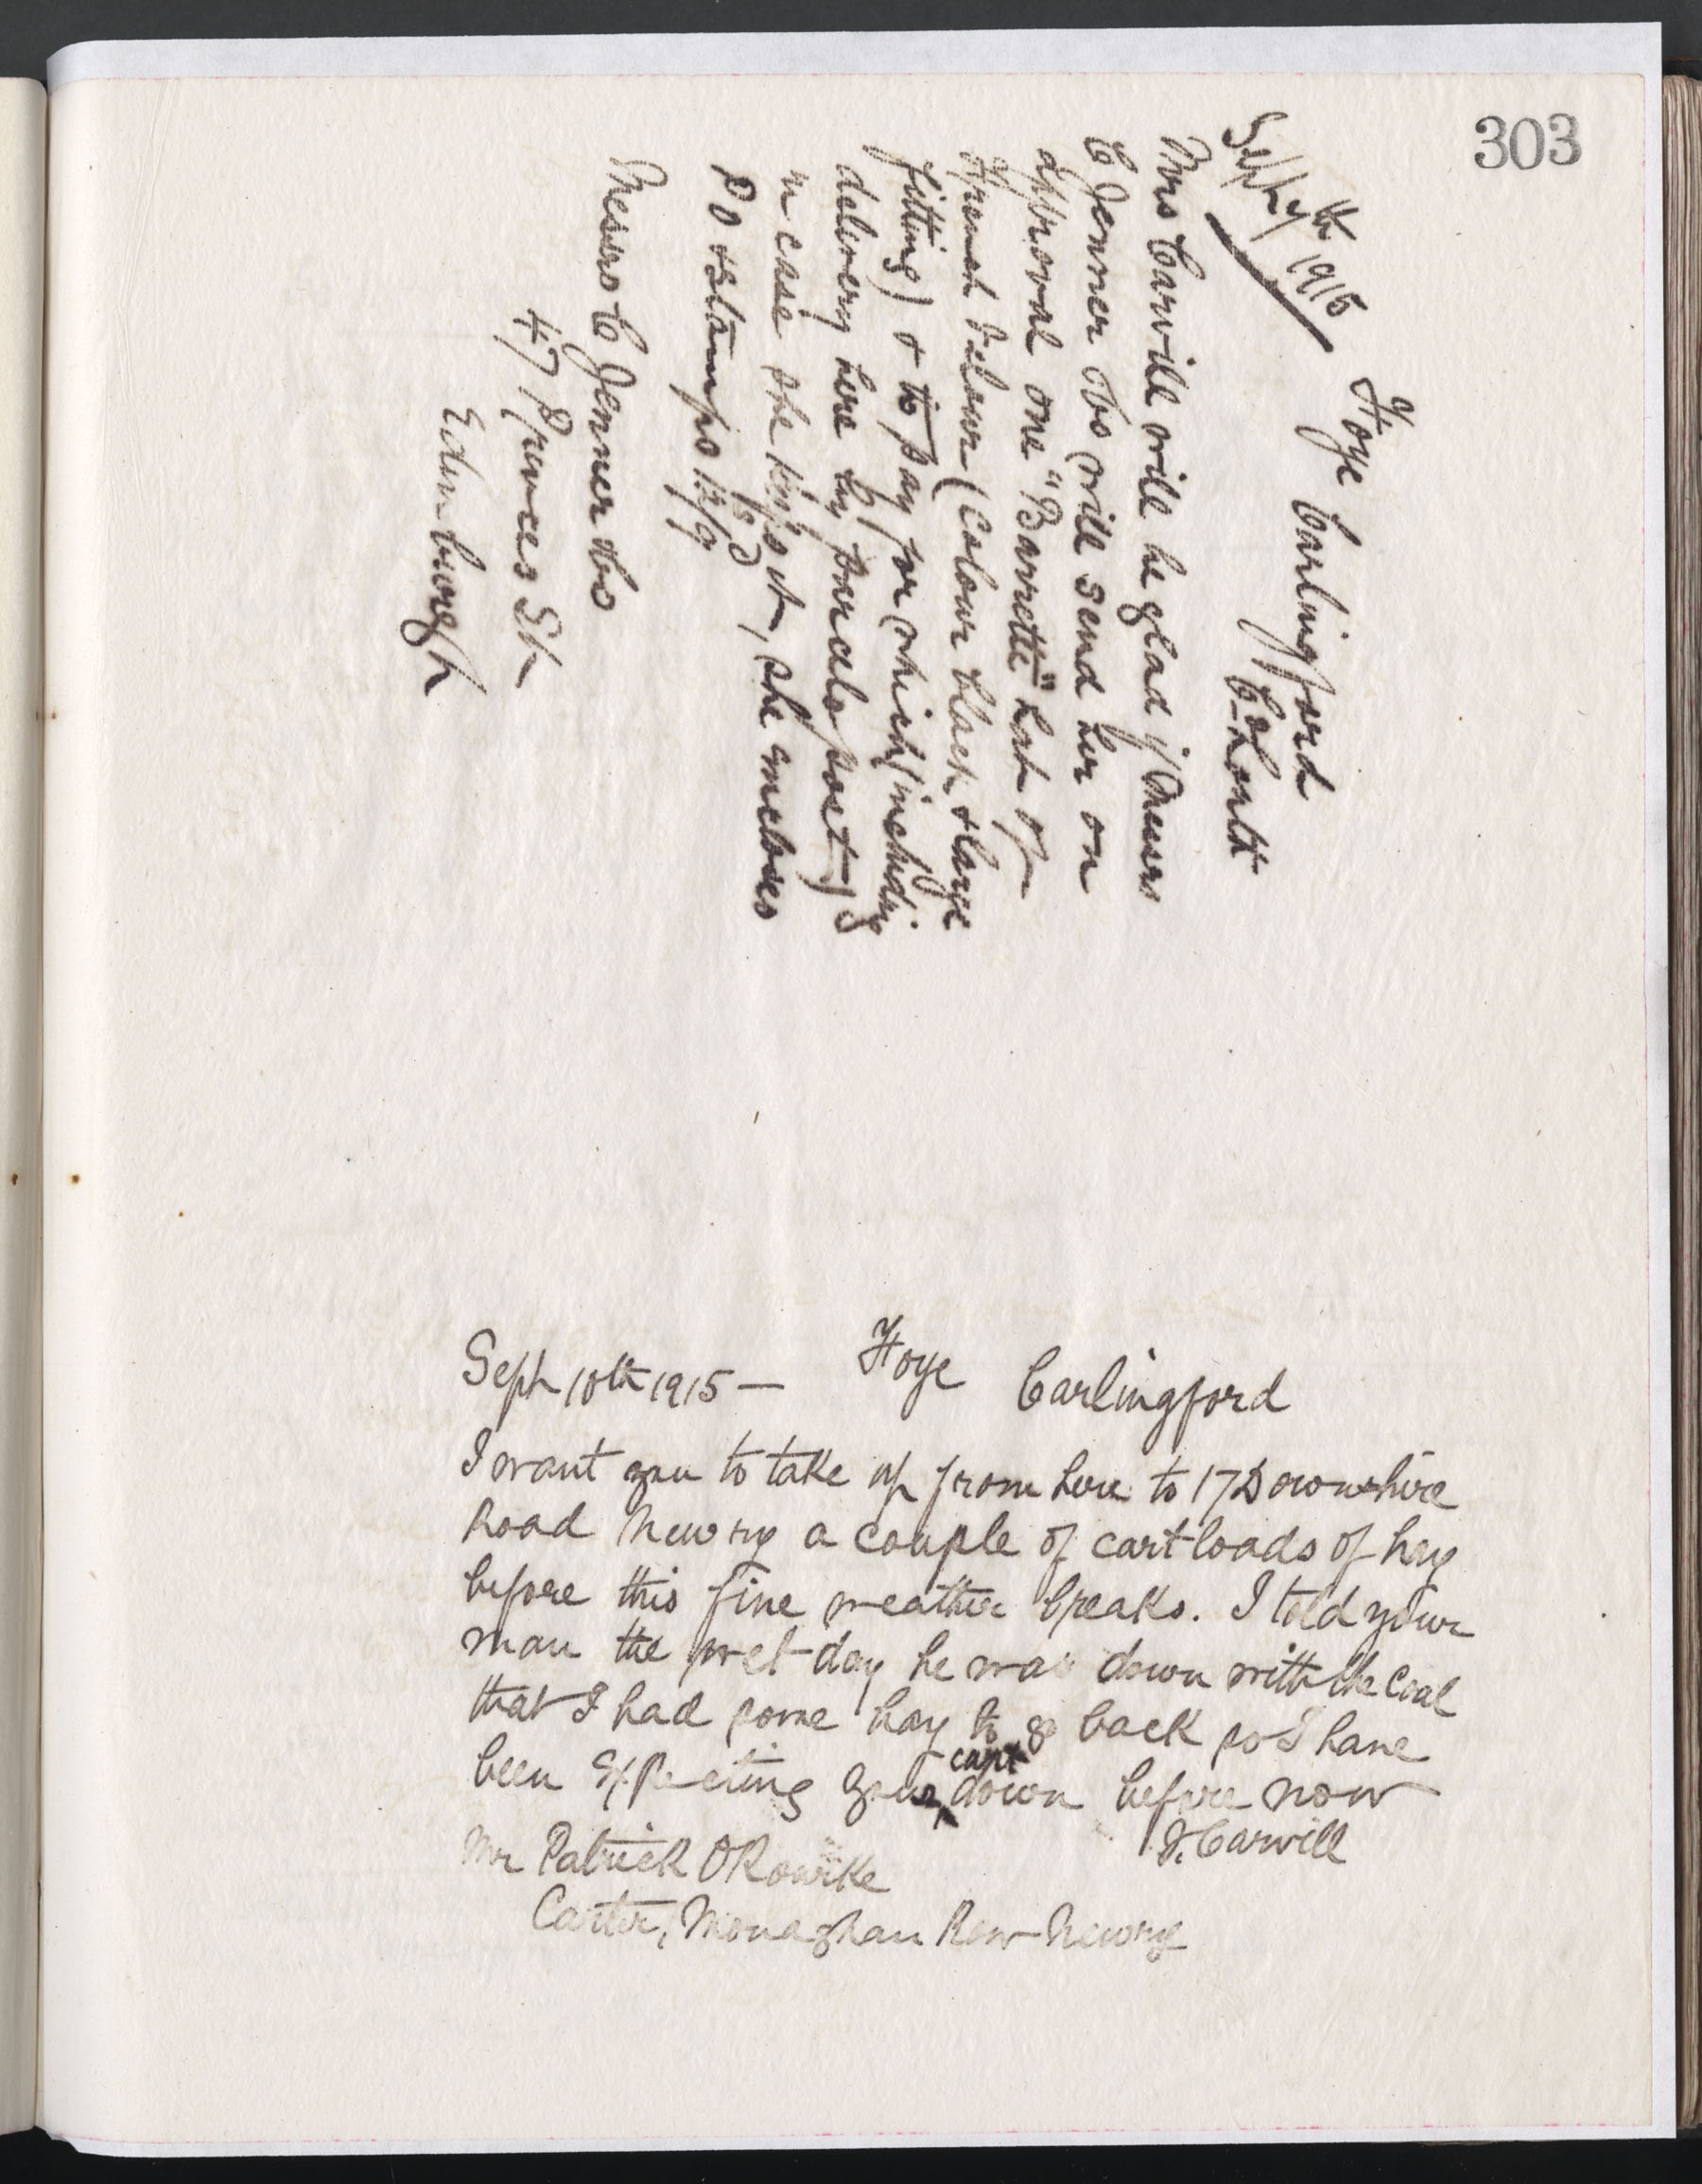 303
Foye Carlingford
Sept 7th 1915
Co Louth
Mrs Carvill will be glad if Messrs
C Jenner &Co will send her on
approval one "Barrette" hat of
French Velour (Colour black & large
fitting) & to pay for which (including
delivery here by parcels post)
in case she keeps it, she encloses
PO & stamps
Messrs C Jenner &Co
47 Princes St
Edinburgh
Sept 10th 1915 — Foye Carlingford
I want you to take up from here to 17 Downshire
Road Newry a couple of cart loads of hay
before this fine weather breaks. I told your
man the wet day he was down with the coal
that I had some hay to go back so I have
been expecting your cart down before now
J. Carvill
Mr Patrick ORourke
Carter, Monaghan Row Newry